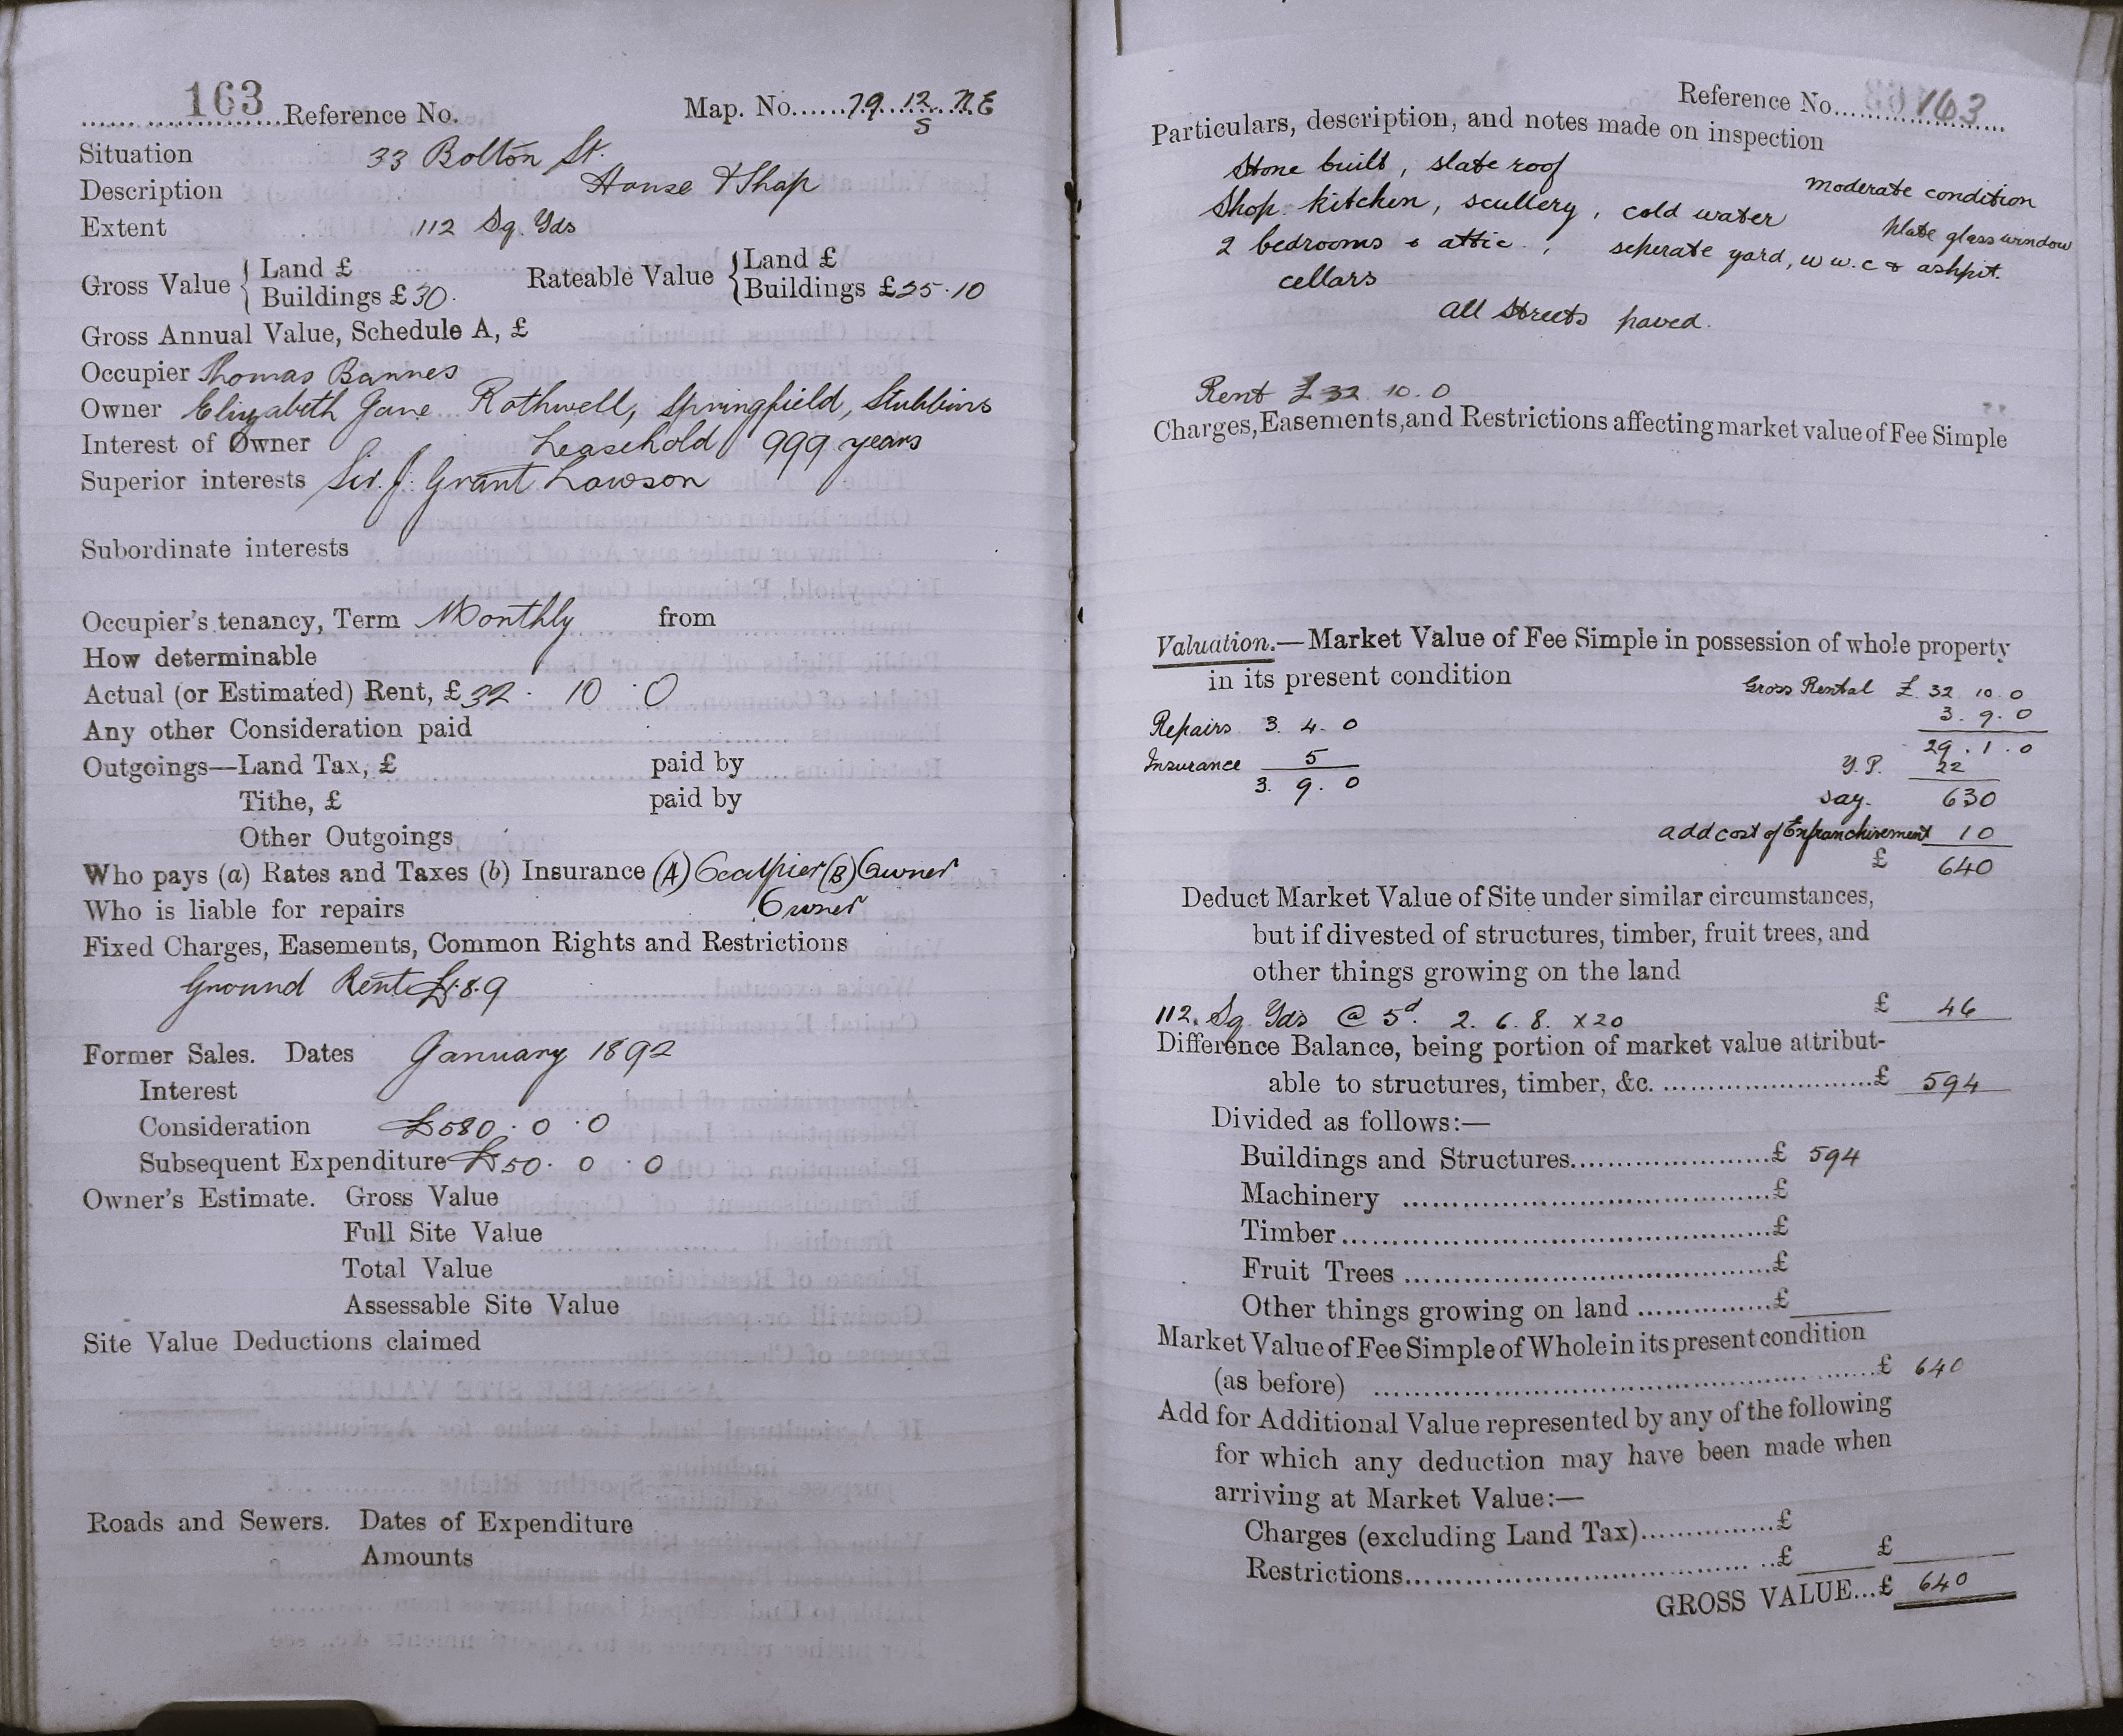 163 Reference No. Map. No. 79. 12. N.E
S
Situation 33 Bolton St.
Description House & Shop
Extent 112 Sq. Yds
Gross Value { Land £
Buildings £30. Rateable Value { Land £
Buildings £25.10
Gross Annual Value, Schedule A, £
Occupier Thomas Barnes
Owner Elizabeth Jane Rothwell, Springfield, Stubbins
Interest of Owner Leasehold 999 years
Superior interests Sir. J. Grant Lawson
Subordinate interests
Occupier's tenancy, Term Monthly from
How determinable
Actual (or Estimated) Rent, £32. 10. 0
Any other Consideration paid
Outgoings—Land Tax, £ paid by
Tithe, £ paid by
Other Outgoings
Who pays (a) Rates and Taxes (b) Insurance (A) Occupier (B) Owner
Who is liable for repairs Owner
Fixed Charges, Easements, Common Rights and Restrictions
Ground Rent £1.8.9
Former Sales. Dates January 1892
Interest
Consideration £580. 0. 0
Subsequent Expenditure £50. 0. 0
Owner's Estimate. Gross Value
Full Site Value
Total Value
Assessable Site Value
Site Value Deductions claimed
Roads and Sewers. Dates of Expenditure
Amounts
Reference No. 163
Particulars, description, and notes made on inspection
Stone built, slate roof moderate condition
Shop. kitchen, scullery, cold water plate glass window
2 bedrooms & attic, seperate yard, w w.c & ashpit.
cellars
All Streets paved.
Rent £32. 10. 0
Charges, Easements, and Restrictions affecting market value of Fee Simple
Valuation.—Market Value of Fee Simple in possession of whole property
in its present condition Gross Rental £. 32. 10. 0
Repairs 3. 4. 0 3. 9. 0
Insurance 5 29. 1. 0
3. 9. 0 Y.P. 22
say. 630
add cost of Enfranchisement 10
£ 640
Deduct Market Value of Site under similar circumstances,
but if divested of structures, timber, fruit trees, and
other things growing on the land
112. Sq. Yds @ 5d. 2. 6. 8. x 20 £ 46
Difference Balance, being portion of market value attribut-
able to structures, timber, &c. £ 594
Divided as follows:—
Buildings and Structures £ 594
Machinery £
Timber £
Fruit Trees £
Other things growing on land £
Market Value of Fee Simple of Whole in its present condition
(as before) £ 640
Add for Additional Value represented by any of the following
for which any deduction may have been made when
arriving at Market Value:—
Charges (excluding Land Tax) £
Restrictions £ £
GROSS VALUE...£ 640